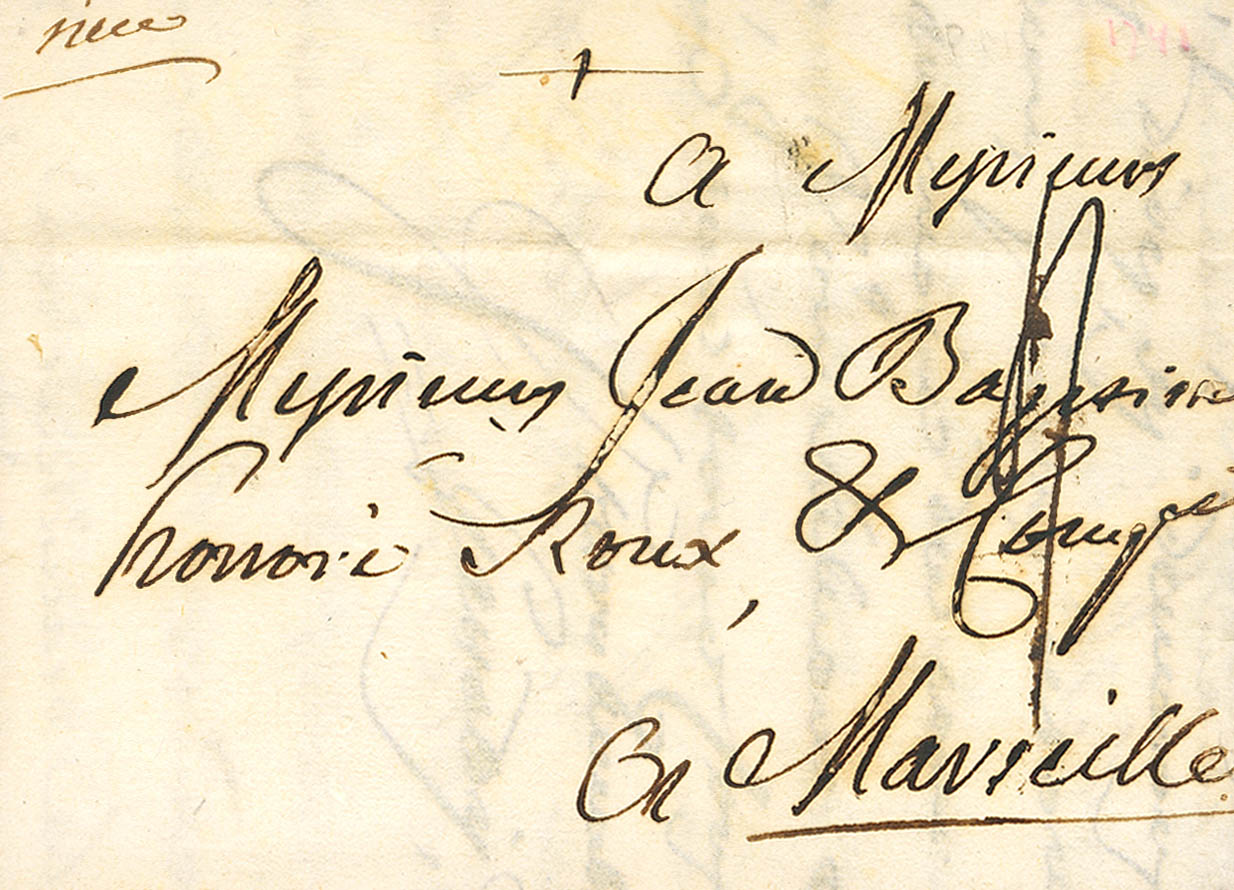 nice
1741
a Messieurs
Messieurs Jean Baptiste
honnoré Roux, & Compe
a Marseille